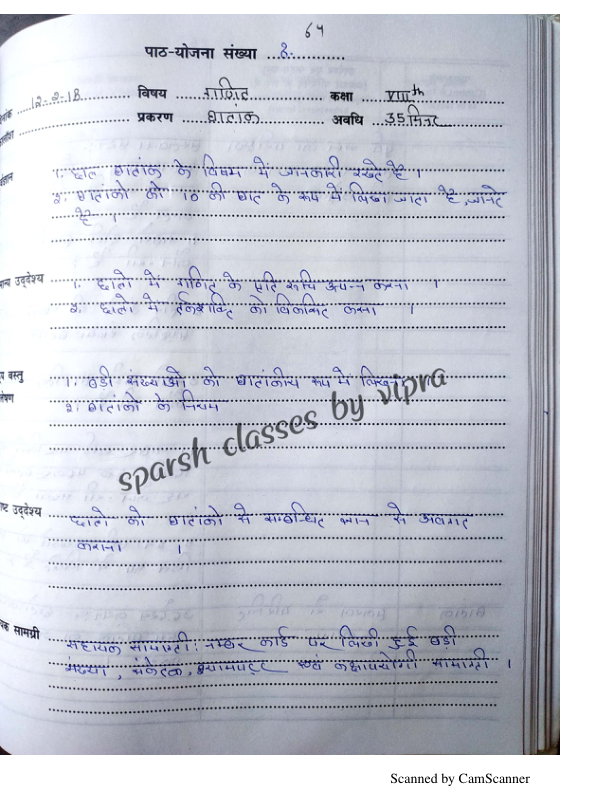 64
पाठ-योजना संख्या ..2...........
12-2-18 विषय गणित कक्षा VIIIth
प्रकरण घातांक अवधि 35 मिनट
1. छात्र घातांक के विषय में जानकारी रखते है ।
2. घातांको को 10 की घात के रूप में लिखा जाता है, जानते
है ।
उद्देश्य 1. छात्रो में गणित के प्रति रूचि उत्पन्न करना ।
2. छात्रो में तर्कशक्ति को विकसित करना ।
वस्तु 1. बड़ी संख्याओं को घातांकीय रूप में लिखना
2. घातांको के नियम
sparsh classes by vipra
उद्देश्य छात्रो को घातांको से सम्बन्धित ज्ञान से अवगत
कराना ।
सामग्री
सहायक सामाग्री, नम्बर कार्ड पर लिखी हुई बड़ी
संख्या, संकेतक, श्यामपट्ट एवं कक्षोपयोगी सामाग्री ।
Scanned by CamScanner